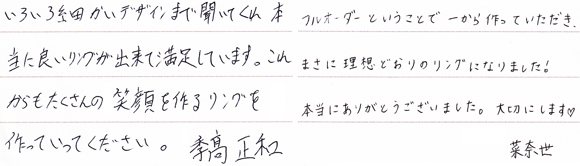 いろいろ細かいデザインまで聞いてくれ 本
当に良いリングが出来て満足しています。これ
からもたくさんの笑顔を作るリングを
作っていってください。 季高 正和
フルオーダーということで一から作っていただき、
まさに理想どおりのリングになりました!
本当にありがとうございました。大切にします♡
菜奈世